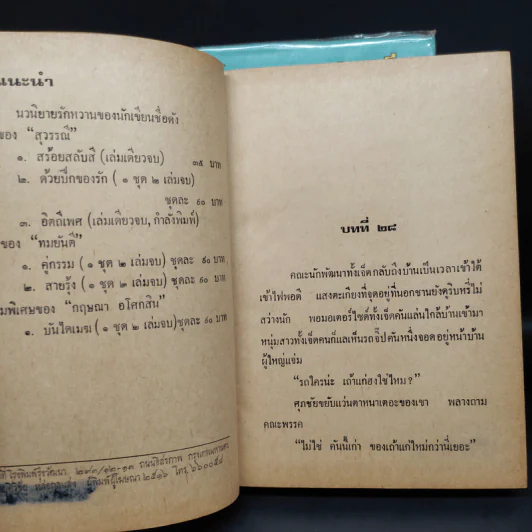 แนะนำ
นวนิยายรักหวานของนักเขียนชื่อดัง
ของ “สุวรรณี”
๑. สร้อยสลับสี (เล่มเดียวจบ) ๓๕ บาท
๒. ด้วยปีกของรัก ( ๑ ชุด ๒ เล่มจบ)
ชุดละ ๙๐ บาท
๓. อิตถีเพศ (เล่มเดียวจบ, กำลังพิมพ์)
ของ “ทมยันตี”
๑. คู่กรรม ( ๑ ชุด ๒ เล่มจบ) ชุดละ ๙๐ บาท
๒. สายรุ้ง ( ๑ ชุด ๒ เล่มจบ) ชุดละ ๙๐ บาท
มพิเศษของ “กฤษณา อโศกสิน”
๑. บันไดเมฆ ( ๑ ชุด ๒ เล่มจบ)ชุดละ ๙๐ บาท
ที่โรงพิมพ์รุ่งวัฒนา ถนนอิสรภาพ กรุงเทพมหานคร
ผู้พิมพ์ผู้โฆษณา ๒๕๑๖ โทร. ๖๖๑๐๕๘
บทที่ ๒๘
คณะนักพัฒนาทั้งเจ็ดกลับถึงบ้านเป็นเวลาเข้าใต้
เข้าไฟพอดี แสงตะเกียงที่จุดอยู่ที่นอกชานยังดูริบหรี่ไม่
สว่างนัก พอมอเตอร์ไซค์ทั้งเจ็ดคันแล่นใกล้บ้านเข้ามา
หนุ่มสาวทั้งเจ็ดคนก็แลเห็นรถจี๊ปคันหนึ่งจอดอยู่หน้าบ้าน
ผู้ใหญ่แจ่ม
“รถใครน่ะ เถ้าแก่ฮงใช่ไหม?”
ศุภชัยขยับแว่นตาหนาเตอะของเขา พลางถาม
คณะพรรค
“ไม่ใช่ คันนี้เก่า ของเถ้าแก่ใหม่กว่านี้เยอะ”